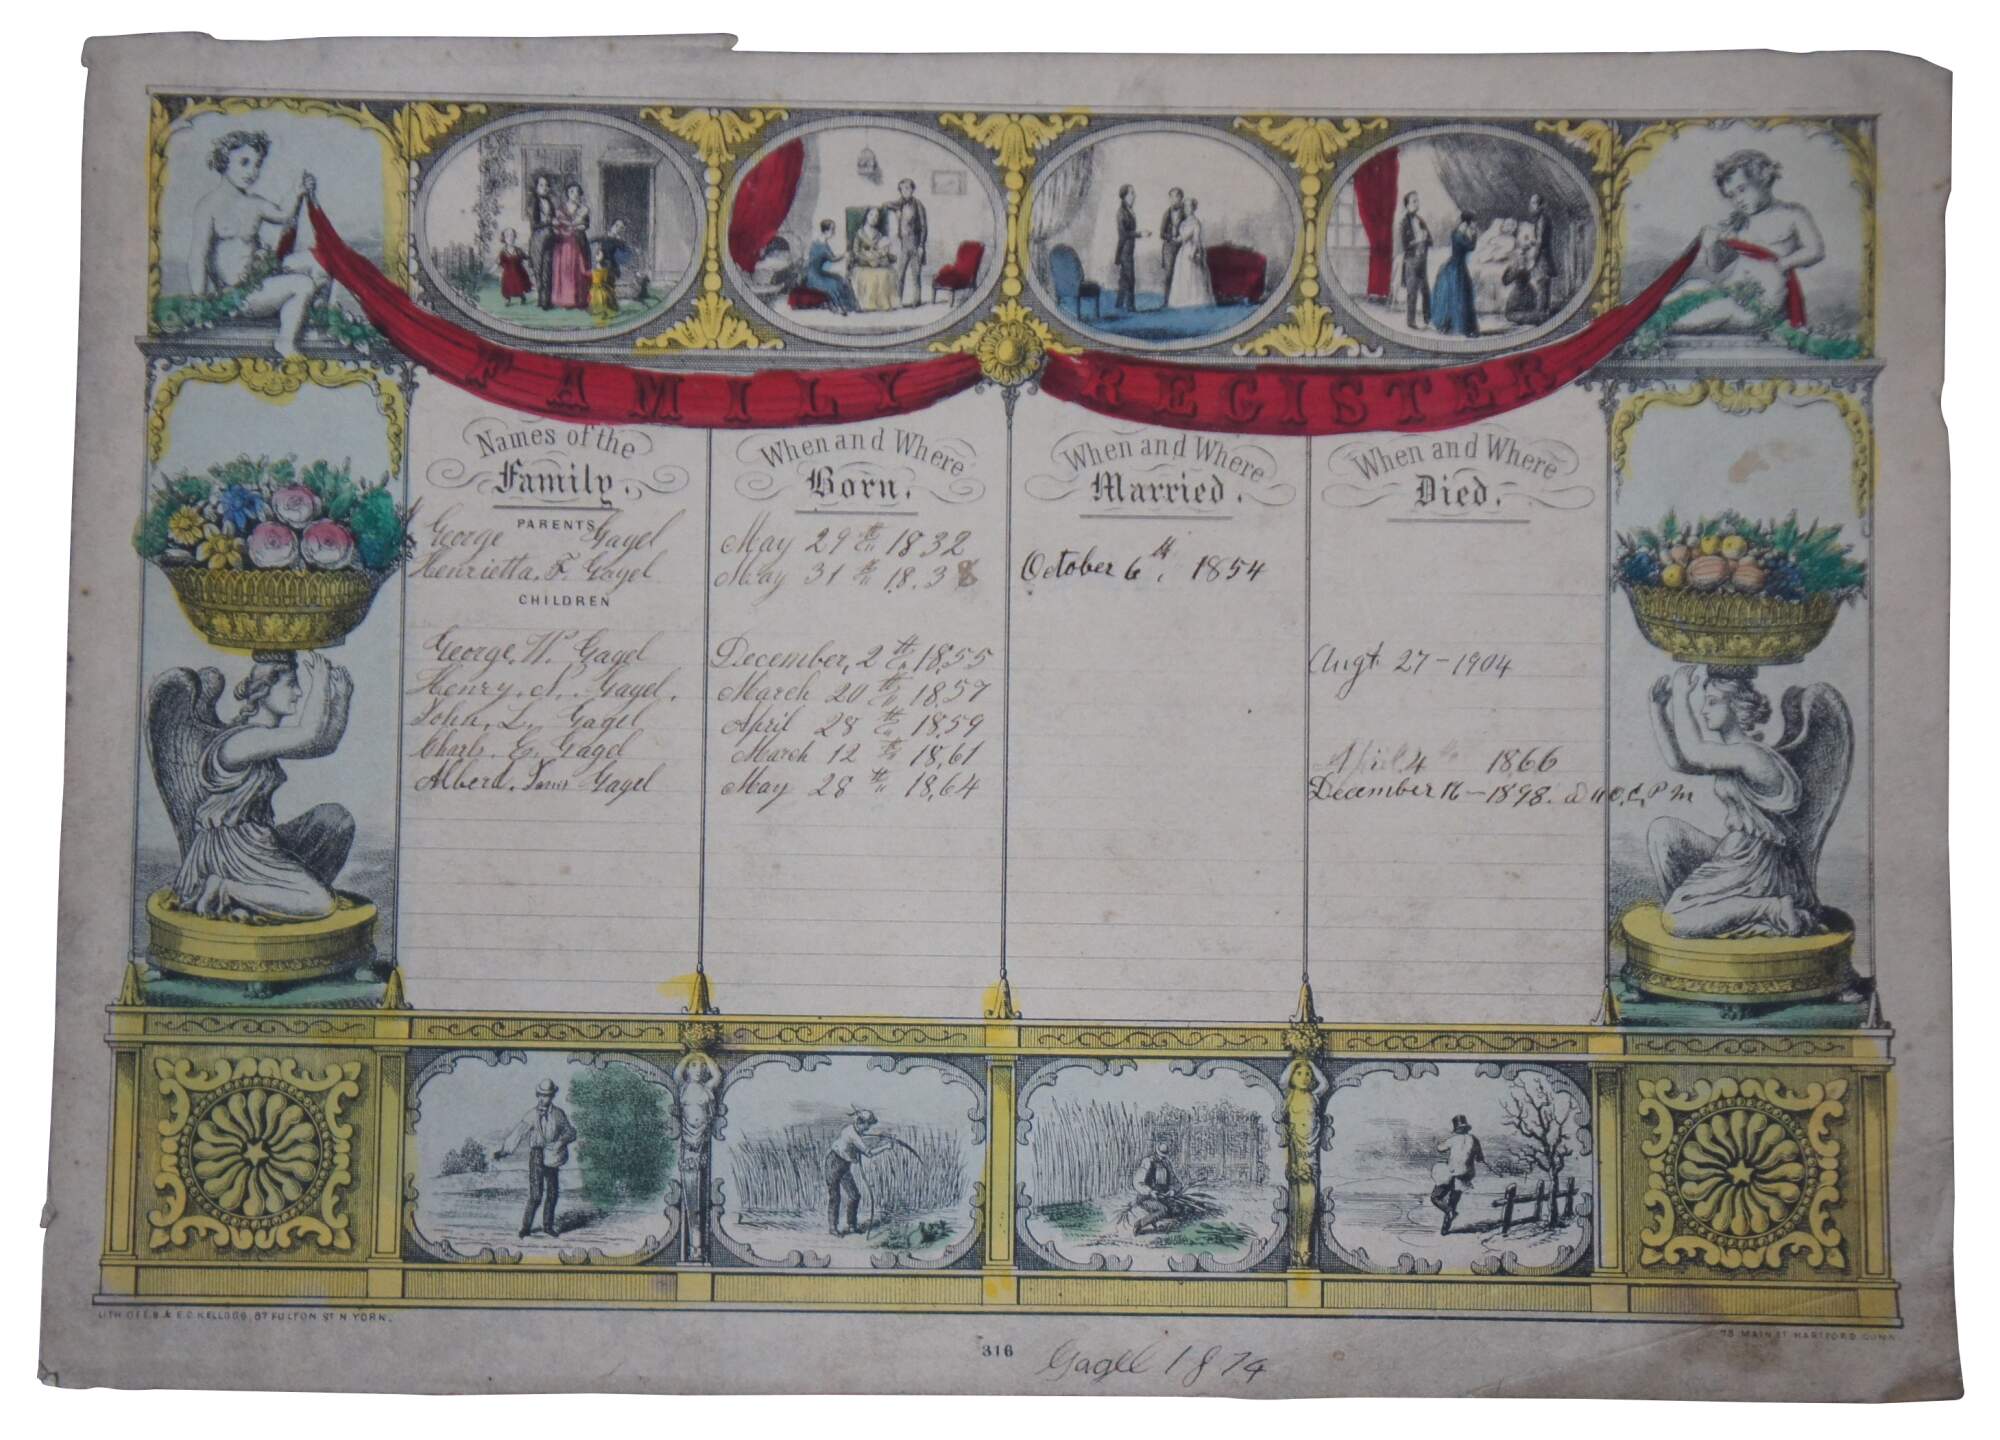 FAMILY REGISTER
Names of the Family. When and Where Born. When and Where Married. When and Where Died.
PARENTS
George Gagel May 29th 1832
Henrietta. F. Gagel May 31th 18.38 October 6th. 1854
CHILDREN
George. W. Gagel December, 2th 1855 Augt 27-1904
Henry. Gagel. March 20th 1857
John. L. Gagel April 28th 1859
Charls. E. Gagel March 12th 18,61 April 4th 1866
Albert. Gagel May 28th 18,64 December 16-1898. P M
LITH. OF E.B. & E.C. KELLOGG, 87 FULTON ST N YORK.
73 MAIN ST HARTFORD CONN
316
Gagel 1874